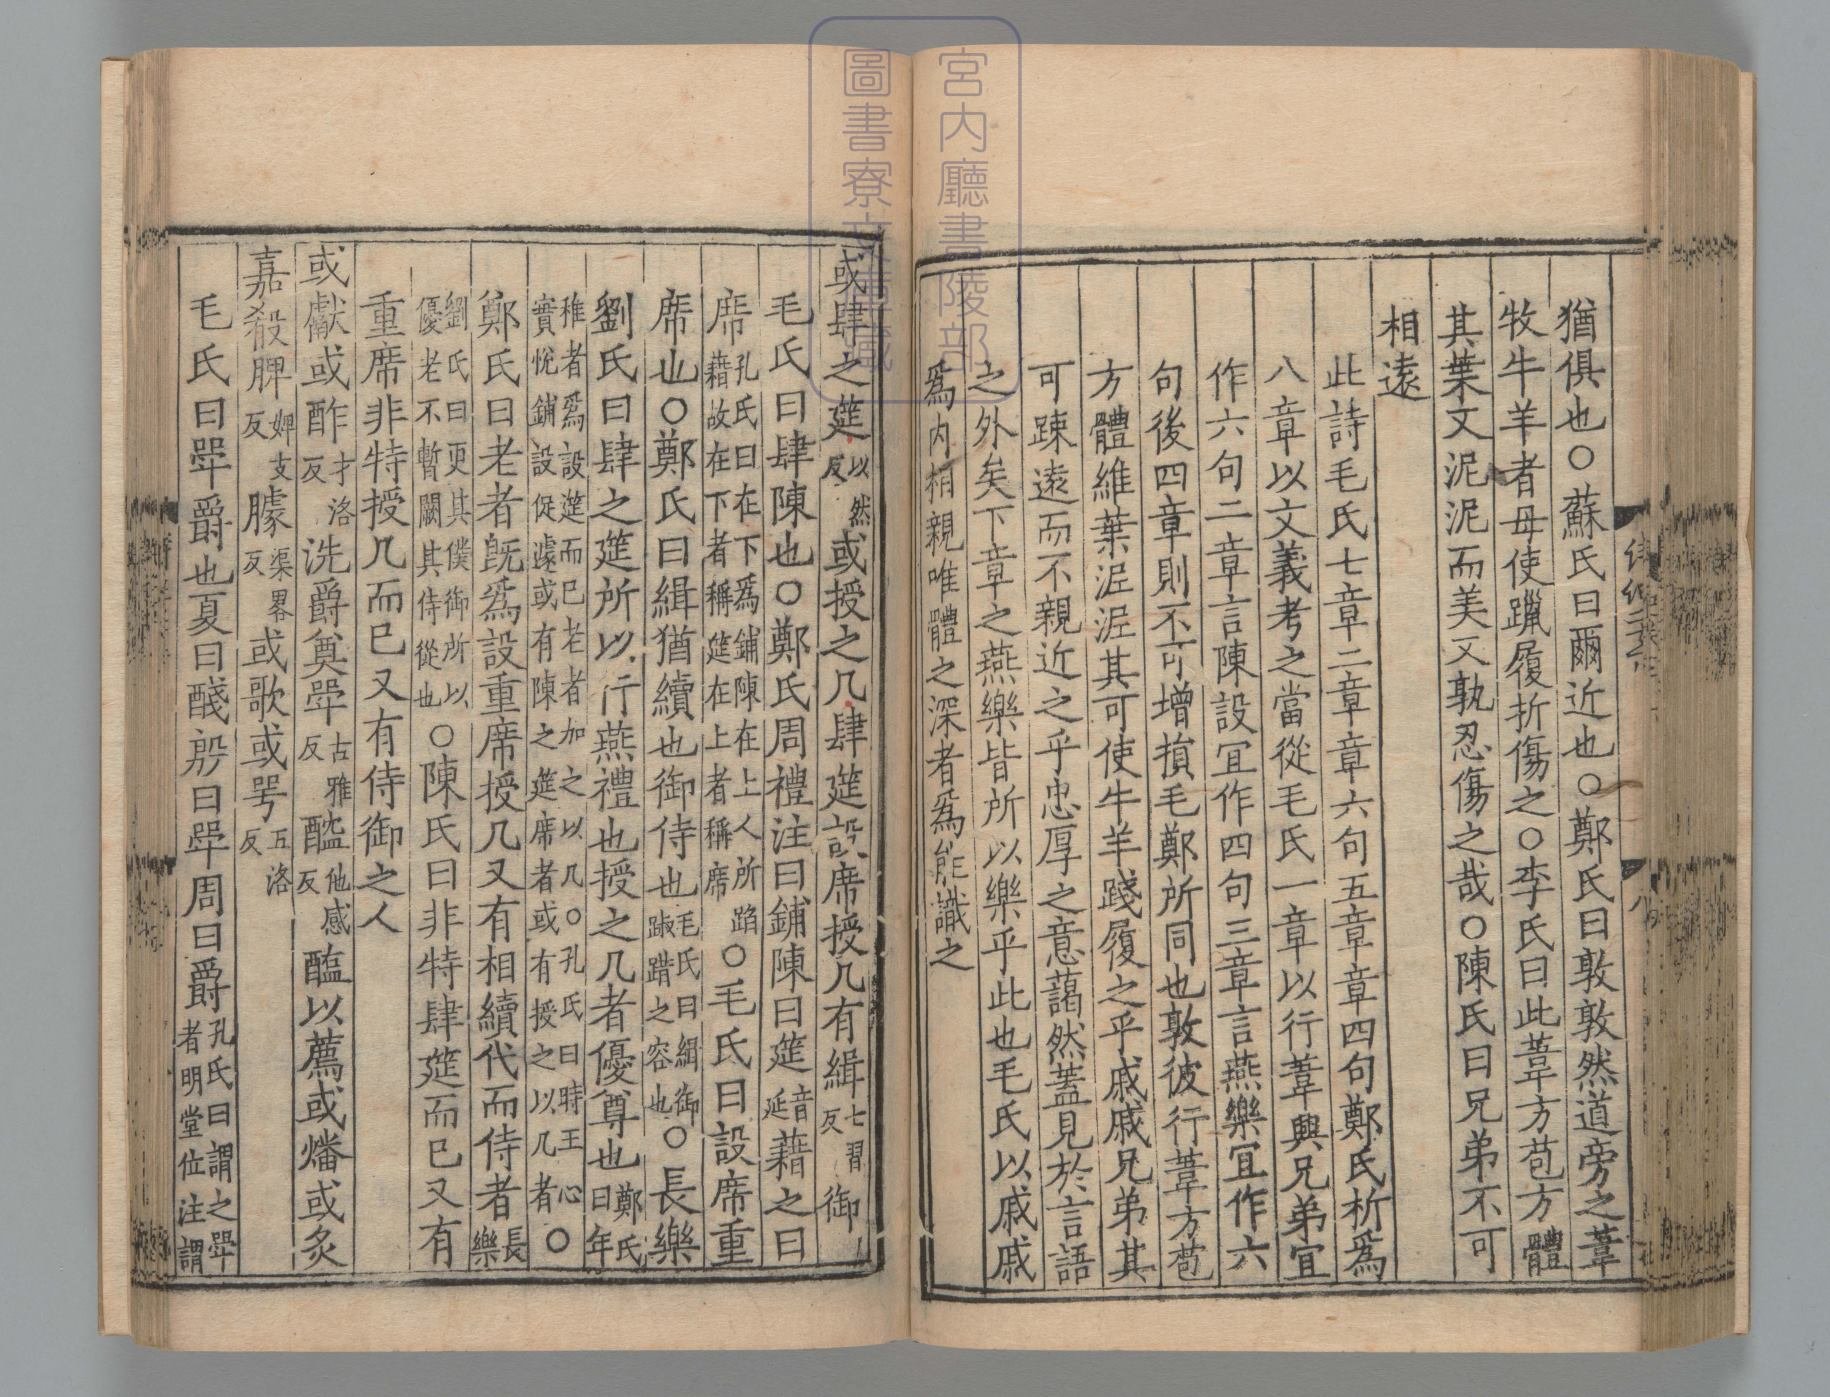 猶俱也○蘇氏曰爾近也○鄭氏曰敦敦然道旁之葦
牧牛羊者毋使躐履折傷之○李氏曰此葦方苞方體
其葉文泥泥而美又孰忍傷之哉○陳氏曰兄弟不可
相遠
此詩毛氏七章二章章六句五章章四句鄭氏析爲
八章以文義考之當從毛氏一章以行葦興兄弟宜
作六句二章言陳設宜作四句三章言燕樂宜作六
句後四章則不可增損毛鄭所同也敦彼行葦方苞
方體維葉泥泥其可使牛羊踐履之乎戚戚兄弟其
可踈遠而不親近之乎忠厚之意藹然蓋見於言語
之外矣下章之燕樂皆所以樂乎此也毛氏以戚戚
爲內相親唯體之深者爲能識之
或肆之筵以然反或授之几肆筵設席授几有緝七習反御
毛氏曰肆陳也○鄭氏周禮注曰鋪陳曰筵音延藉之曰
席孔氏曰在下爲鋪陳在上人所蹈藉故在下者稱筵在上者稱席○毛氏曰設席重
席也○鄭氏曰緝猶續也御侍也毛氏曰緝御踧踖之容也○長樂
劉氏曰肆之筵所以行燕禮也授之几者優尊也鄭氏曰年
稚者爲設筵而已老者加之以几○孔氏曰時王心實悅鋪設促遽或有陳之筵席者或有授之以几者○
鄭氏曰老者旣爲設重席授几又有相續代而侍者長樂
劉氏曰更其僕御所以優老不暫闕其侍從也○陳氏曰非特肆筵而已又有
重席非特授几而已又有侍御之人
或獻或酢才洛反洗爵奠斝古雅反醓他感反醢以薦或燔或炙
嘉殽脾婢支反臄渠畧反或歌或咢五洛反
毛氏曰斝爵也夏曰醆殷曰斝周曰爵孔氏曰謂之斝者明堂位注謂
宮内廳書陵部
圖書寮文庫藏